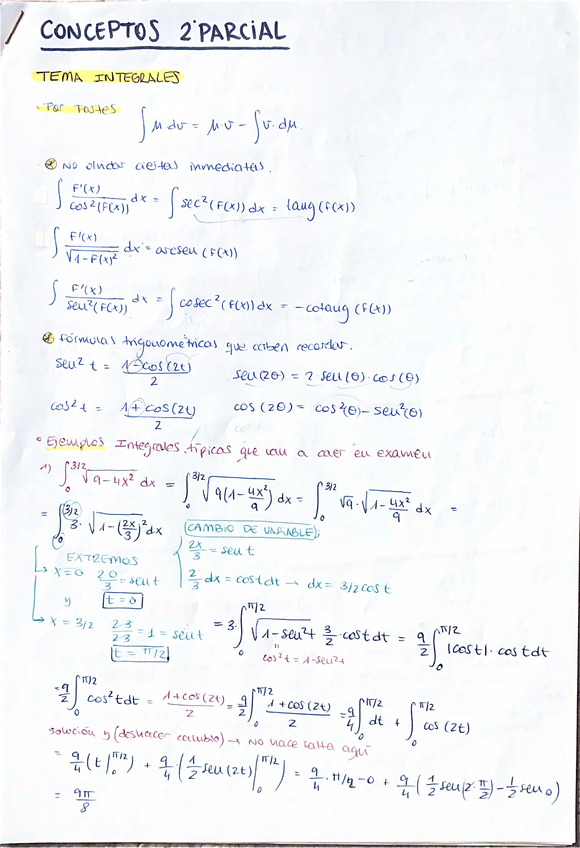 CONCEPTOS 2ºPARCIAL
TEMA INTEGRALES
· Por Partes ∫ μ dv = μ·v - ∫ v·dμ.
No olvidar ciertas inmediatas.
∫ F'(x)/cos²(F(x)) dx = ∫ sec²(F(x)) dx = tang (F(x))
∫ F'(x)/√1-F(x)² dx = arcsen (F(x))
∫ F'(x)/sen²(F(x)) dx = ∫ cosec²(F(x)) dx = -cotang (F(x))
Fórmulas trigonométricas que caben recordar.
sen² t = 1-cos(2t)/2 sen(2θ) = 2·sen(θ)·cos(θ)
cos² t = 1+cos(2t)/2 cos (2θ) = cos²(θ)-sen²(θ)
° Ejemplos Integrales típicas que van a caer en examen
1) ∫₀^3/2 √9-4x² dx = ∫₀^3/2 √9(1-4x²/9) dx = ∫₀^3/2 √9·√1-4x²/9 dx =
= ∫₀^3/2 3·√1-(2x/3)² dx
CAMBIO DE VARIABLE;
2x/3 = sen t
2/3 dx = cost dt → dx = 3/2 cos t
EXTREMOS
→ x=0 2·0/3 = sen t
y t=0
→ x = 3/2 2·3/2·3 = 1 = sen t
t = π/2
= 3·∫₀^π/2 √1-sen²t 3/2·cost dt = 9/2 ∫₀^π/2 |cost|·cost dt
cos²t = 1-sen²t
= 9/2 ∫₀^π/2 cos²t dt = 1+cos(2t)/2 = 9/2 ∫₀^π/2 1+cos(2t)/2 = 9/4 ∫₀^π/2 dt + ∫₀^π/2 cos (2t)
solución y (deshacer cambio) → No hace falta aquí
= 9/4 (t|₀^π/2) + 9/4·(1/2 sen(2t)|₀^π/2) = 9/4·π/2-0 + 9/4 (1/2 sen(2·π/2)-1/2 sen 0)
= 9π/8